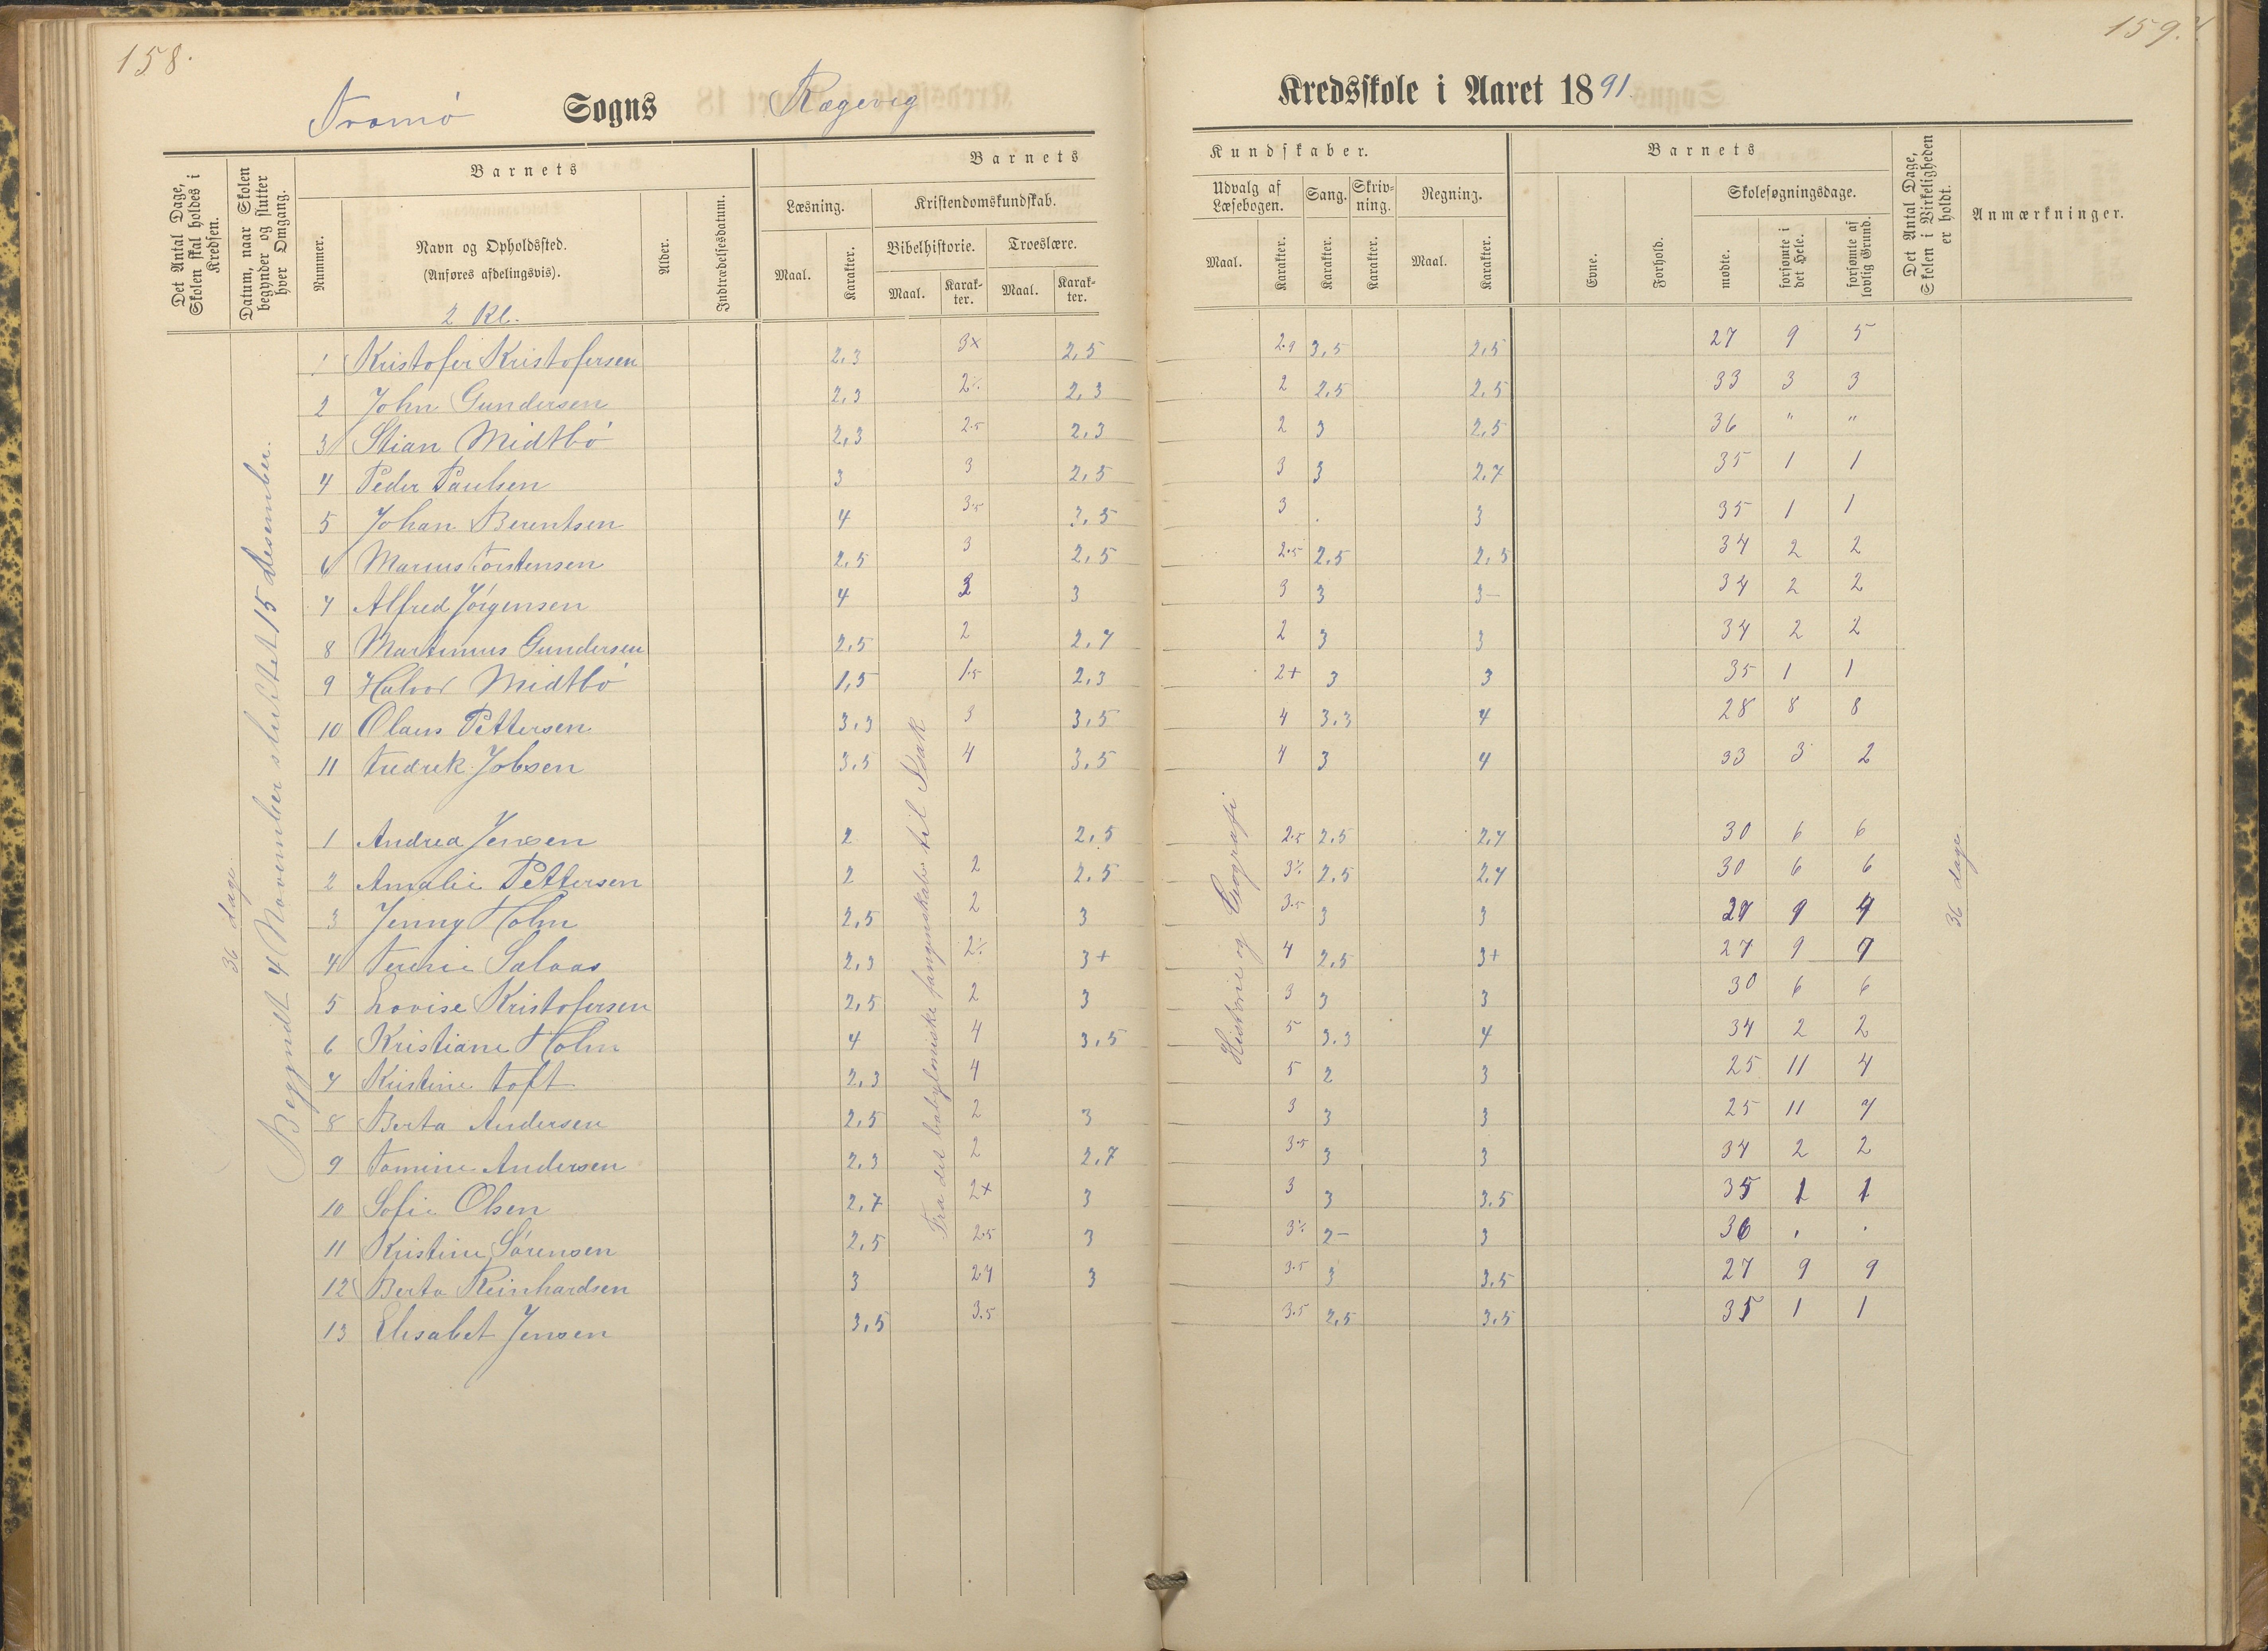 158.
159.
Tromø Sogns Rægevig Kredsskole i Aaret 1891.
Det Antal Dage, Skolen skal holdes i Kredsen.
Datum, naar Skolen begynder og slutter hver Omgang.
Barnets
Nummer.
Navn og Opholdssted.
(Anføres afdelingsvis).
Alder.
Indtrædelsesdatum.
Barnets Kundskaber.
Læsning.
Maal. Karakter.
Kristendomskundskab.
Bibelhistorie. Troeslære.
Maal. Karakter. Maal. Karakter.
Udvalg af Læsebogen. Sang. Skrivning. Regning.
Maal. Karakter. Karakter. Karakter. Maal. Karakter.
Barnets
Evne. Forhold.
Skolesøgningsdage.
mødte. forsømte i det Hele. forsømte af lovlig Grund.
Det Antal Dage, Skolen i Virkeligheden er holdt.
Anmærkninger.
2 Kl.
1 Kristofer Kristofersen 2,3 3x 2,5 2.9 3,5 2,5 27 9 5
2 John Gundersen 2,3 2½ 2,3 2 2,5 2,5 33 3 3
3 Stian Midtbö 2,3 2.5 2,3 2 3 2,5 36 " "
4 Peder Paulsen 3 3 2,5 3 3 2,7 35 1 1
5 Johan Berentsen 4 3.5 3,5 3 . 3 35 1 1
6 Marius Torstensen 2,5 3 2,5 2.5 2,5 2,5 34 2 2
7 Alfred Jörgensen 4 3 3 3 3 3- 34 2 2
8 Martinius Gundersen 2,5 2 2,7 2 3 3 34 2 2
9 Halvor Midtbö 1,5 1.5 2,3 2+ 3 3 35 1 1
10 Olaus Pettersen 3,3 3 3,5 4 3,3 4 28 8 8
11 Fredrek Jobsen 3,5 4 3,5 4 3 4 33 3 2
1 Andrea Jensen 2 2,5 2.5 2,5 2,7 30 6 6
2 Amalie Pettersen 2 2 2,5 3½ 2,5 2,7 30 6 6
3 Jenny Holm 2,5 2 3 3.5 3 3 27 9 4
4 Teresie Salaas 2,3 2½ 3+ 4 2,5 3+ 27 9 9
5 Lovise Kristofersen 2,5 2 3 3 3 3 30 6 6
6 Kristiane Holm 4 4 3,5 5 3.3 4 34 2 2
7 Kristine Toft 2,3 4 5 2 3 25 11 4
8 Berta Andersen 2,5 2 3 3 3 3 25 11 7
9 Tomine Andersen 2,3 2 2,7 3.5 3 3 34 2 2
10 Sofie Olsen 2,7 2+ 3 3 3 3.5 35 1 1
11 Kristine Sörensen 2,5 2.5 3 3½ 2- 3 36 . .
12 Berta Reinhardsen 3 2.7 3 3.5 3 3.5 27 9 9
13 Elisabet Jensen 3,5 3.5 3.5 2,5 3.5 35 1 1
36 dage
Begyndt 4 November sluttet 15 desember.
Fra det babyloniske fangenskab til Isak
Historie og Geografi
36 dage